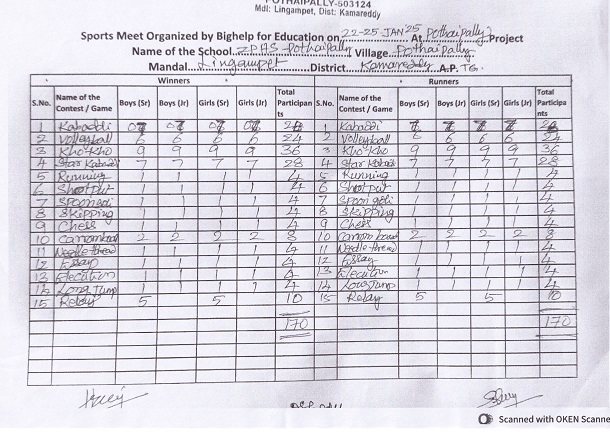 POTHAIPALLY-503124
Mdl: Lingampet, Dist: Kamareddy
Sports Meet Organized by Bighelp for Education on 22-25 JAN'25 At Pothaipally Project
Name of the School ZPHS Pothaipally Village Pothaipally
Mandal Lingampet District Kamareddy A.P. TG.
Winners Runners
S.No. Name of the Contest / Game Boys (Sr) Boys (Jr) Girls (Sr) Girls (Jr) Total Participants S.No. Name of the Contest / Game Boys (Sr) Boys (Jr) Girls (Sr) Girls (Jr) Total Participants
1 Kabaddi 28 1 Kabaddi 7 7 7 7 28
2 Volleyball 6 6 6 6 24 2 Volleyball 6 6 6 6 24
3 Kho-Kho 9 9 9 9 36 3 Kho-Kho 9 9 9 9 36
4 Star Kabaddi 7 7 7 7 28 4 Star Kabaddi 7 7 7 7 28
5 Running 1 1 1 1 4 5 Running 1 1 1 1 4
6 Shootput 1 1 1 1 4 6 Shootput 1 1 1 1 4
7 1 1 1 1 4 7 Spoon goli 1 1 1 1 4
8 Skipping 1 1 1 1 4 8 Skipping 1 1 1 1 4
9 Chess 1 1 1 1 4 9 Chess 1 1 1 1 4
10 2 2 2 2 8 10 2 2 2 2 8
11 Needle thread 1 1 1 1 4 11 Needle thread 1 1 1 1 4
12 Essay 1 1 1 1 4 12 Essay 1 1 1 1 4
13 Elecution 1 1 1 1 4 13 Elecution 1 1 1 1 4
14 Long Jump 1 1 1 1 4 14 Long Jump 1 1 1 1 4
15 Relay 5 5 10 15 Relay 5 5 10
170 170
Scanned with OKEN Scanne